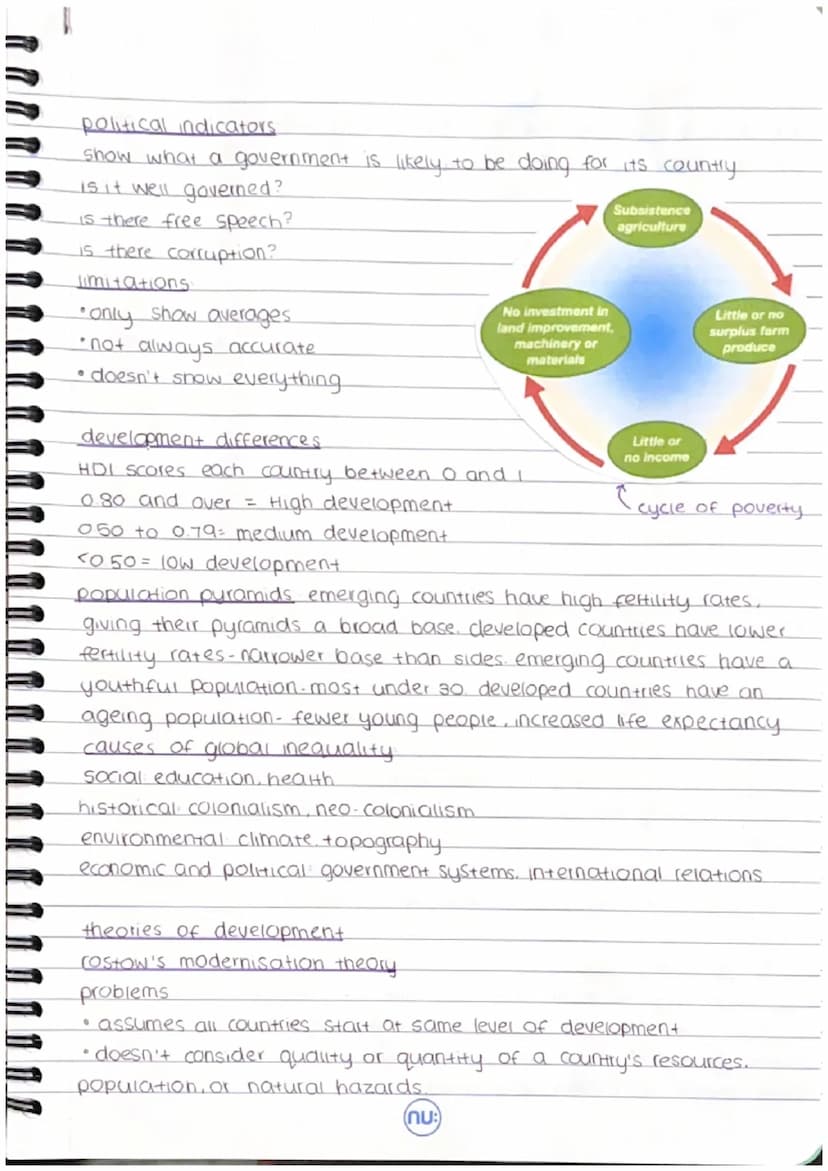 political indicators
show what a government is likely to be doing for its country
is it well governed?
is there free speech?
is there corruption?
limitations
•only show averages
•not always accurate
•doesn't show everything
Subsistence
agriculture
Little or no
surplus farm
produce
Little or
no income
No investment in
land improvement,
machinery or
materials
cycle of poverty
development differences
HDI scores each country between 0 and 1
0.80 and over = High development
0.50 to 0.79= medium development
<0.50= low development
population pyramids emerging countries have high fertility rates,
giving their pyramids a broad base. developed countries have lower
fertility rates-narrower base than sides. emerging countries have a
youthful population-most under 30. developed countries have an
ageing population- fewer young people, increased life expectancy
causes of global inequality
social: education, health
historical: colonialism, neo-colonialism
environmental: climate, topography
economic and political: government systems, international relations
theories of development
rostow's modernisation theory
problems
• assumes all countries start at same level of development
•doesn't consider quality or quantity of a country's resources,
population, or natural hazards.
nu: